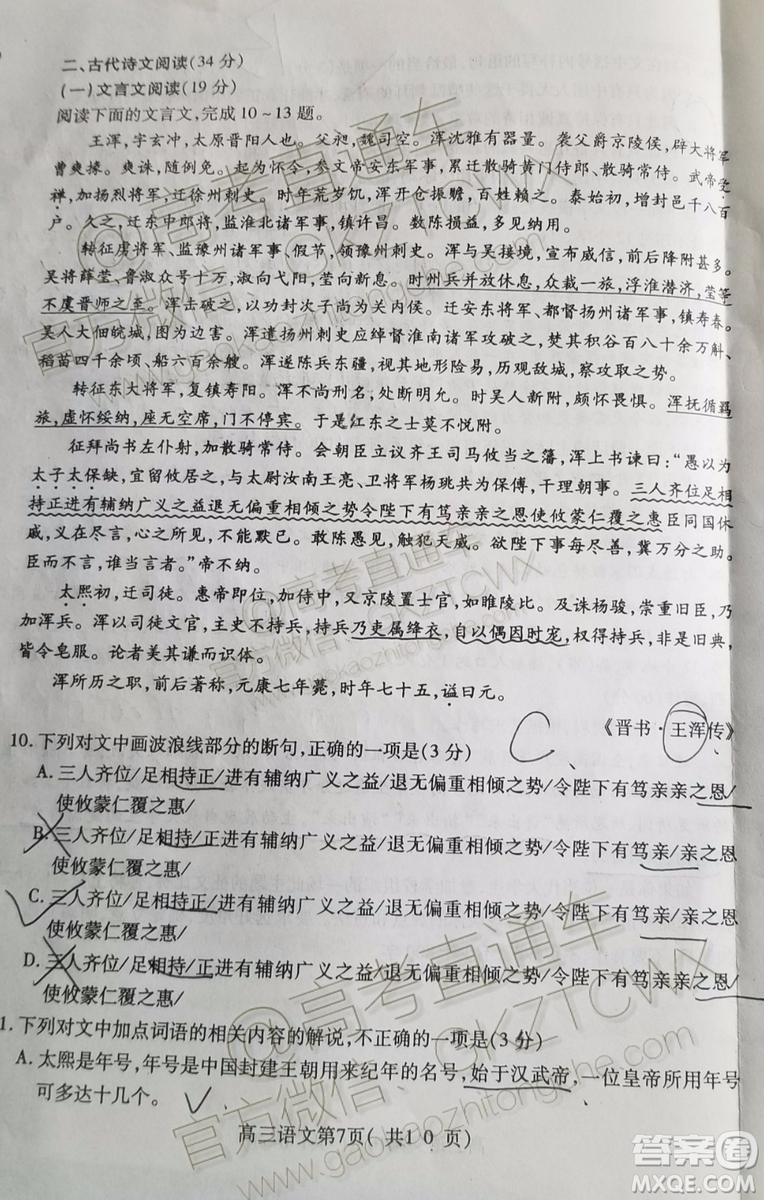 二、古代诗文阅读(34分)
(一)文言文阅读(19分)
阅读下面的文言文,完成10~13题。
王浑,字玄冲,太原晋阳人也。父昶,魏司空。浑沈雅有器量。袭父爵京陵侯,辟大将军
曹爽掾。爽诛,随例免。起为怀令,参文帝安东军事,累迁散骑黄门侍郎、散骑常侍。武帝受
禅,加扬烈将军,迁徐州刺史。时年荒岁饥,浑开仓振赡,百姓赖之。泰始初,增封邑千八百
户。久之,迁东中郎将,监淮北诸军事,镇许昌。数陈损益,多见纳用。
转征虏将军、监豫州诸军事、假节,领豫州刺史。浑与吴接境,宣布威信,前后降附甚多。
吴将薛莹、鲁淑众号十万,淑向弋阳,莹向新息。时州兵并放休息,众裁一旅,浮淮潜济,莹等
不虞晋师之至。浑击破之,以功封次子尚为关内侯。迁安东将军、都督扬州诸军事,镇寿春。
吴人大佃皖城,图为边害。浑遣扬州刺史应绰督淮南诸军攻破之,并破诸别屯,焚其积谷百八十余万斛、
稻苗四千余顷、船六百余艘。浑遂陈兵东疆,视其地形险易,历观敌城,察攻取之势。
转征东大将军,复镇寿阳。浑不尚刑名,处断明允。时吴人新附,颇怀畏惧。浑抚循羁
旅,虚怀绥纳,座无空席,门不停宾。于是红东之士莫不悦附。
征拜尚书左仆射,加散骑常侍。会朝臣立议齐王司马攸当之藩,浑上书谏曰:“愚以为
太子太保缺,宜留攸居之,与太尉汝南王亮、卫将军杨珧共为保傅,干理朝事。三人齐位足相
持正进有辅纳广义之益退无偏重相倾之势令陛下有笃亲亲之恩使攸蒙仁覆之惠臣同国休
戚,义在尽言,心之所见,不能默已。敢陈愚见,触犯天威。欲陛下事每尽善,冀万分之助。
臣而不言,谁当言者。”帝不纳。
太熙初,迁司徒。惠帝即位,加侍中,又京陵置士官,如睢陵比。及诛杨骏,崇重旧臣,乃
加浑兵。浑以司徒文官,主史不持兵,持兵乃吏属绛衣,自以偶因时宠,权得持兵,非是旧典,
皆令皂服。论者美其谦而识体。
浑所历之职,前后著称,元康七年薨,时年七十五,谥曰元。
《晋书·王浑传》
10.下列对文中画波浪线部分的断句,正确的一项是(3分)
A.三人齐位/足相持正/进有辅纳广义之益/退无偏重相倾之势/令陛下有笃亲亲之恩/
使攸蒙仁覆之惠/
B.三人齐位/足相持/正进有辅纳广义之益/退无偏重相倾之势/令陛下有笃亲/亲之恩
使攸蒙仁覆之惠/
C.三人齐位/足相持正/进有辅纳广义之益/退无偏重相倾之势/令陛下有笃亲/亲之恩
使攸蒙仁覆之惠/
D.三人齐位/足相持/正进有辅纳广义之益/退无偏重相倾之势/令陛下有笃亲亲之恩/
使攸蒙仁覆之惠/
1.下列对文中加点词语的相关内容的解说,不正确的一项是(3分)
A.太熙是年号,年号是中国封建王朝用来纪年的名号,始于汉武帝,一位皇帝所用年号
可多达十几个。
高三语文第7页( 共10页)
@高考直通车
官方微信:GKZTCWX
www.gaokaozhitongche.com
答案圈
MXQE.COM